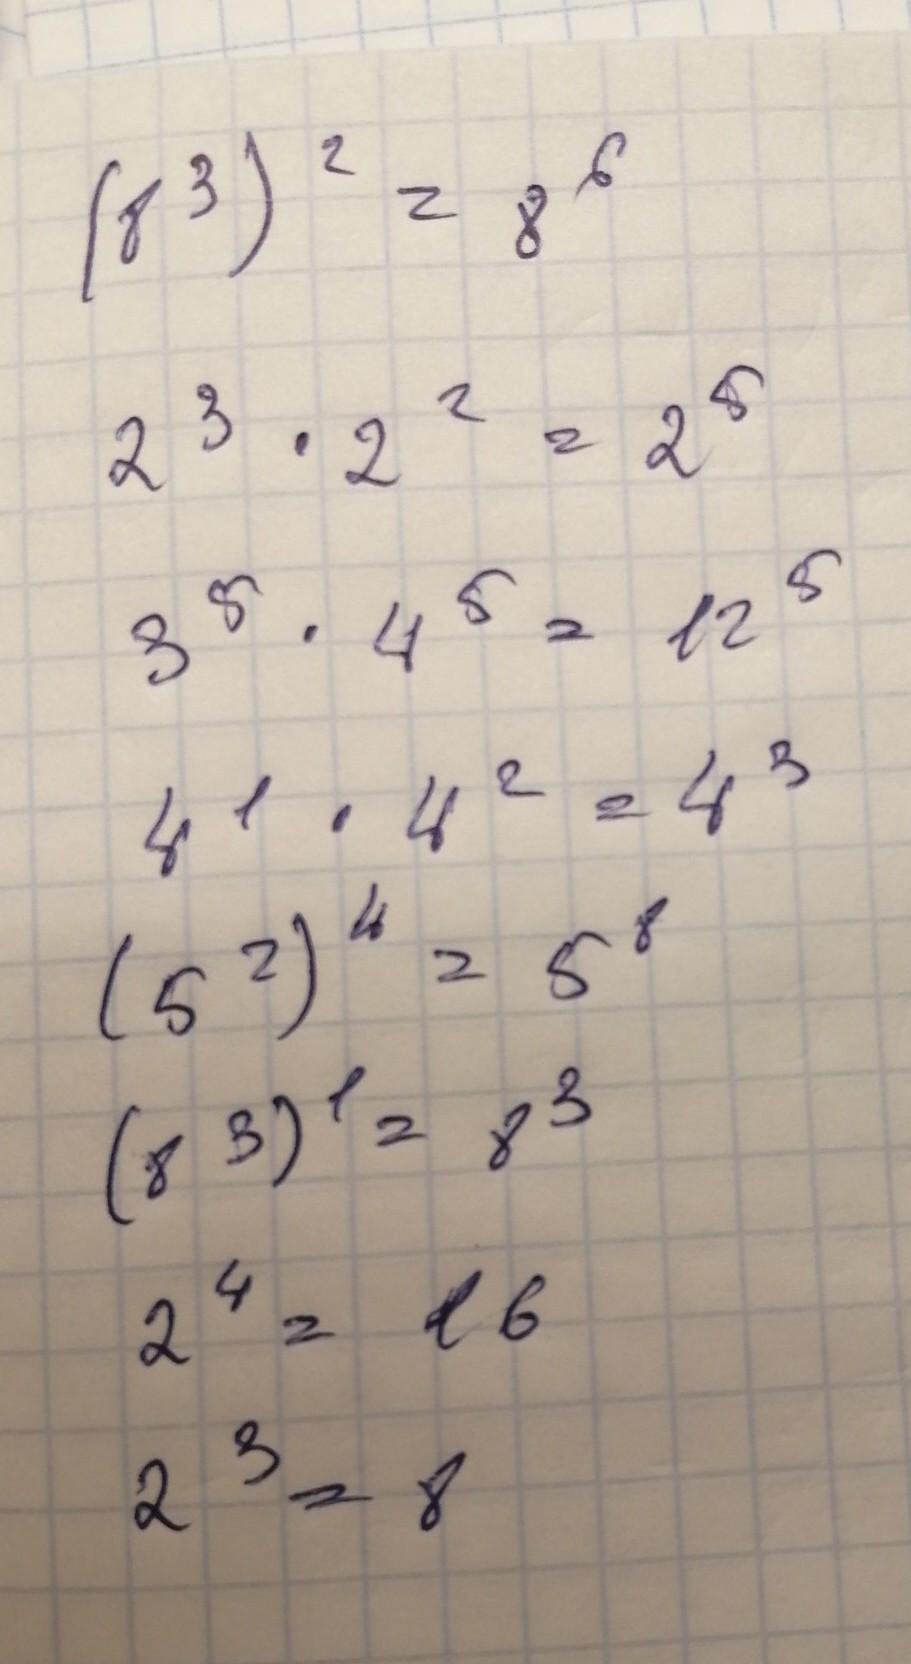 (8³)² = 8⁶
2³ · 2² = 2⁵
3⁵ · 4⁵ = 12⁵
4¹ · 4² = 4³
(5²)⁴ = 5⁸
(8³)¹ = 8³
2⁴ = 16
2³ = 8